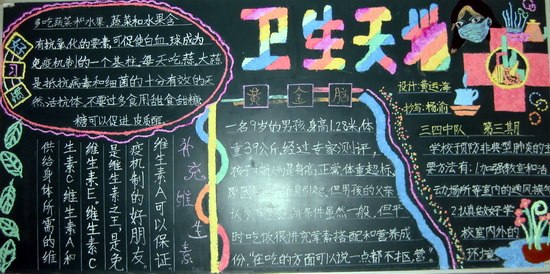 卫生天地
好习惯
多吃蔬菜和水果,蔬菜和水果含
有抗氧化的要素,可促使白血球成为
免疫机制的一个基柱,每天吃蒜,大蒜
是抵抗病毒和细菌的十分有效的天
然活抗体,不要过多食用甜食,甜糕
糖可以促进
补充维生素
维生素A可以保证
疫机制的好朋友。
是维生素之王,是免
维生素E。维生素C
生素C、维生素A和
供给身体所需的维
黄金脆
一名9岁的男孩身高1.28米,体
重39公斤,经过专家测评,
孩子的身高正常,体重超标,
但男孩的父亲
条件虽然一般,但平
时吃饭很讲究荤素搭配和营养成
份,“在吃的方面可以说一点都不吃亏”
设计:黄远海
抄写:杨渝
三四中队 第三期
学校预防非典型肺炎的主
要方法有:1.加强教室和活
动场所等室内的通风换气
2.认真做好学
校室内外的
环境